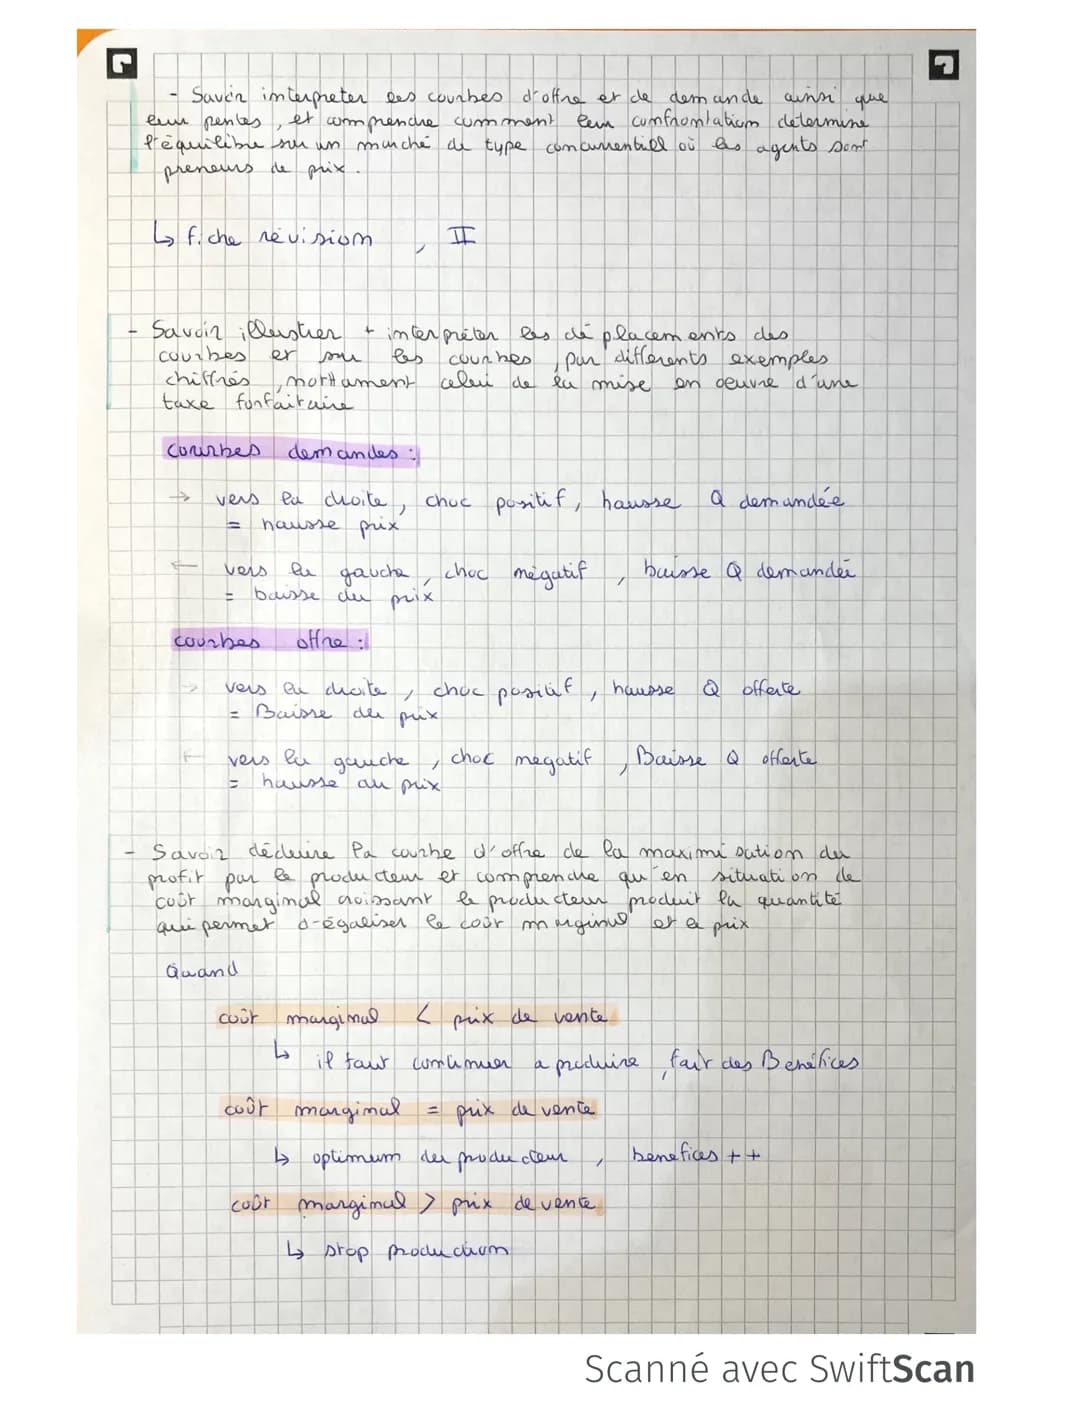 - Savoir interpreter les courbes d'offre et de demande ainsi que
leur pentes, et comprendre comment leur confrontation determine
l'équilibre sur un marché de type concurrentiell où les agents sont
preneurs de prix.
↳ fiche révision, II
- Savoir illustrer + interpréter les déplacements des
courbes et sur les courbes, par différents exemples
chiffrés, nottament celui de la mise en oeuvre d'une
taxe forfaitaire
courbes demandes :
→ vers la droite, choc positif, hausse Q demandée
= hausse prix
← vers la gauche, choc négatif, baisse Q demandée
= baisse du prix
courbes offre :
→ vers la droite, choc positif, hausse Q offerte
= Baisse du prix
← vers la gauche, choc négatif, Baisse Q offerte
= hausse au prix
- Savoir déduire la courbe d'offre de la maximisation du
profit par le producteur et comprendre qu'en situation de
coût marginal croissant le producteur produit la quantité
qui permet d'égaliser le coût marginal et le prix
Quand
coût marginal < prix de vente
↳ il faut continuer a produire, fait des Benéfices
coût marginal = prix de vente
↳ optimum du producteur, benefices ++
coût marginal > prix de vente
↳ stop production
Scanné avec SwiftScan